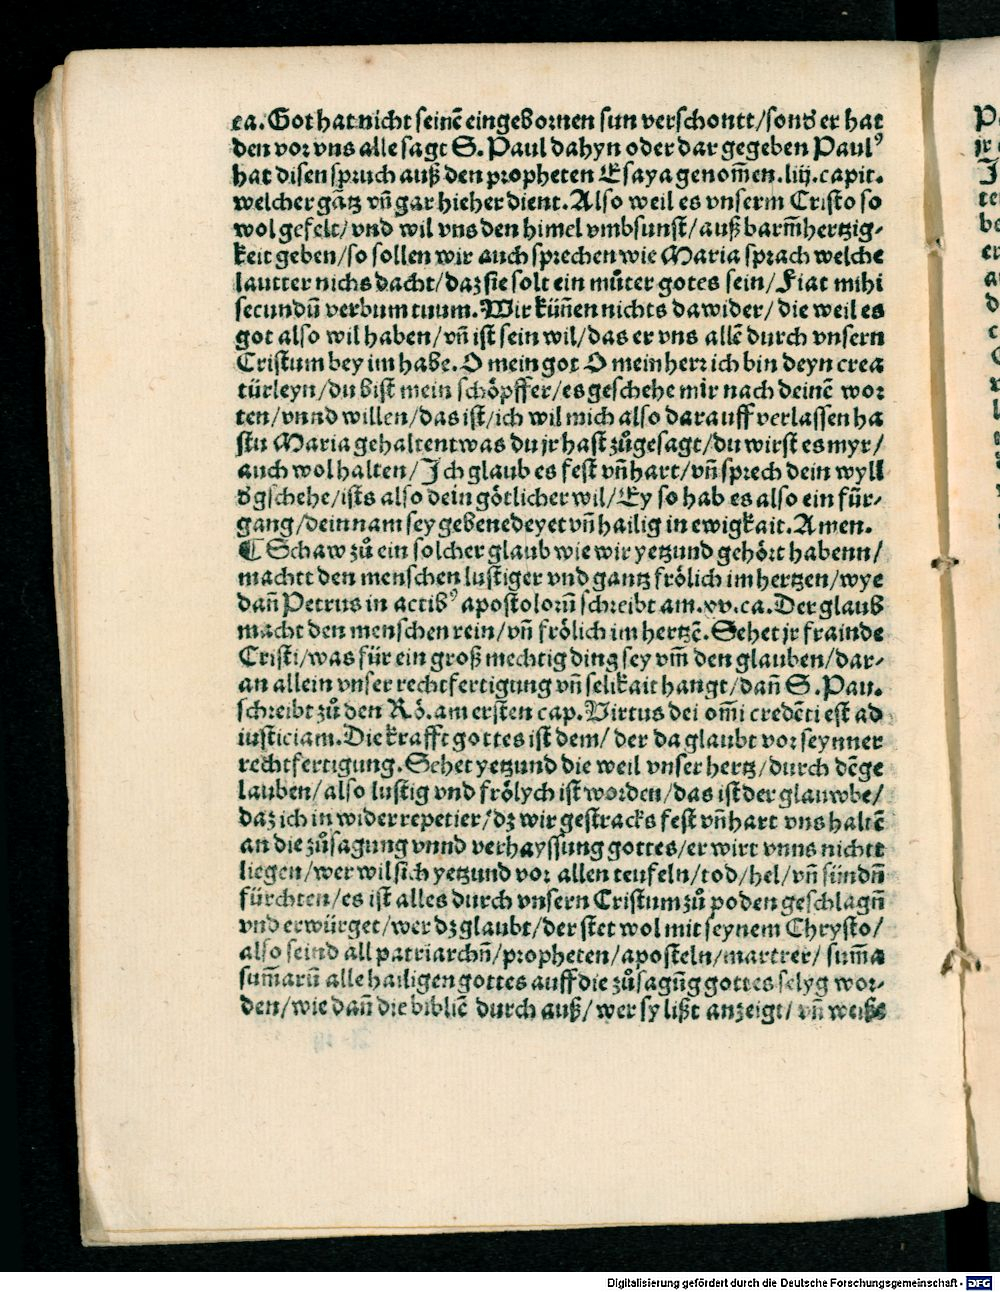 ca. Got hat nicht seinē eingebornen sun verschontt/sonđ er hat
den vor vns alle sagt S. Paul dahyn oder dar gegeben Paulꝰ
hat disen spruch auß den propheten Esaya genom̄en. liij. capit.
welcher gātz vn̄ gar hieher dient. Also weil es vnserm Cristo so
wol gefelt/ vnd wil vns den himel vmbsunst/ auß barm̄hertzig⸗
keit geben/ so sollen wir auch sprechen wie Maria sprach welche
lautter nichs dacht/ daz sie solt ein můter gotes sein/ Fiat mihi
secundū verbum tuum. Wir kün̄en nichts dawider/ die weil es
got also wil haben/ vn̄ ist sein wil/ das er vns allē durch vnsern
Cristum bey im habe. O mein got O mein herr ich bin deyn crea
türleyn/ du bist mein schöpffer/ es geschehe mir nach deinē wor
ten/ vnnd willen/ das ist/ ich wil mich also darauff verlassen ha
stu Maria gehalten twas du jr hast zůgesagt/ du wirst es myr/
auch wol halten/ Ich glaub es fest vn̄ hart/ vn̄ sprech dein wyll
đ gschehe/ ists also dein götlicher wil/ Ey so hab es also ein für⸗
gang/ dein nam sey gebenedeyet vn̄ hailig in ewigkait. Amen.
¶ Schaw zů ein solcher glaub wie wir yetzund gehört habenn/
machtt den menschen lustiger vnd gantz frölich im hertzen/ wye
dan̄ Petrus in actibꝰ apostolorū schreibt am. xv. ca. Der glaub
macht den menschen rein/ vn̄ frölich im hertzē. Sehet jr frainde
Cristi/ was für ein groß mechtig ding sey vm̄ den glauben/ dar⸗
an allein vnser rechtfertigung vn̄ selikait hangt/ dan̄ S. Pau.
schreibt zů den Rö. am ersten cap. Virtus dei om̄i credēti est ad
iusticiam. Die krafft gottes ist dem/ der da glaubt vor seynner
rechtfertigung. Sehet yetzund die weil vnser hertz/ durch dē ge
lauben/ also lustig vnd frölych ist worden/ das ist der glauwbe/
daz ich in wider repetier/ dz wir gestracks fest vn̄ hart vns haltē
an die zůsagung vnnd verhayssung gottes/ er wirt vnns nichtt
liegen/ wer wil sich yetzund vor allen teufeln/ tod/ hel/ vn̄ sündn̄
fürchten/ es ist alles durch vnsern Cristum zů poden geschlagn̄
vnd erwürget/ wer dz glaubt/ der stet wol mit seynem Chrysto/
also seind all patriarchn̄/ propheten/ aposteln/ martrer/ sum̄a
sum̄arū alle hailigen gottes auff die zůsagūg gottes selyg wor⸗
den/ wie dan̄ die bibliē durch auß/ wer sy lißt anzeigt/ vn̄ weißs
Digitalisierung gefördert durch die Deutsche Forschungsgemeinschaft - DFG